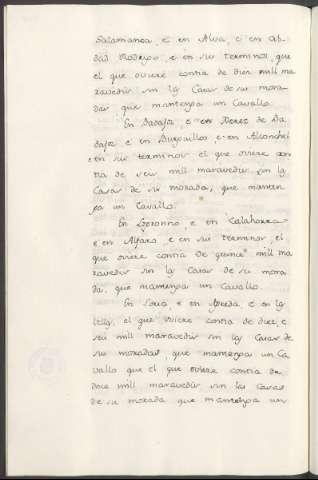 Salamanca, e en Alva, e en Cib-
dad Rodrigo, e en sus terminos, que
el que oviere contia de dies mill ma
ravedis sin las Casas de su mora-
da, que mantenga un Cavallo.
En Badajos, e en Xeres de Ba
dajos e en Burguillos, e en Alconchel
e en sus terminos el que oviere con
tia de seis mill maravedis sin las
Casas de su morada, que manten
ga un Cavallo.
En Logronno, e en Calahorra
e en Alfaro, e en sus terminos, el
que oviere contia de quince mill ma
ravedis sin las Casas de su mora
da, que mantenga un Cavallo.
En Soria, e en Agreda, e en los
el que oviere contia de dies, e
seis mill maravedis sin las Casas de
su morada que mantenga un Ca
vallo que el que oviere contia de
doce mill maravedis sin las Casas
de su morada que mantenga un